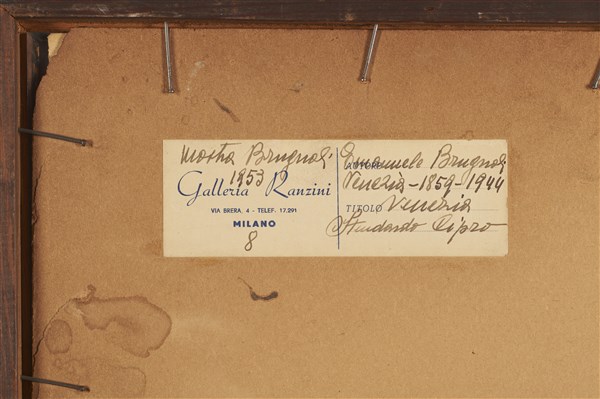 Mostra Brugnoli
1953
Galleria Ranzini
VIA BRERA, 4 - TELEF. 17.291
MILANO
8
AUTORE Emanuele Brugnoli
Venezia - 1859 - 1944
TITOLO Venezia
Stendardo Cipro